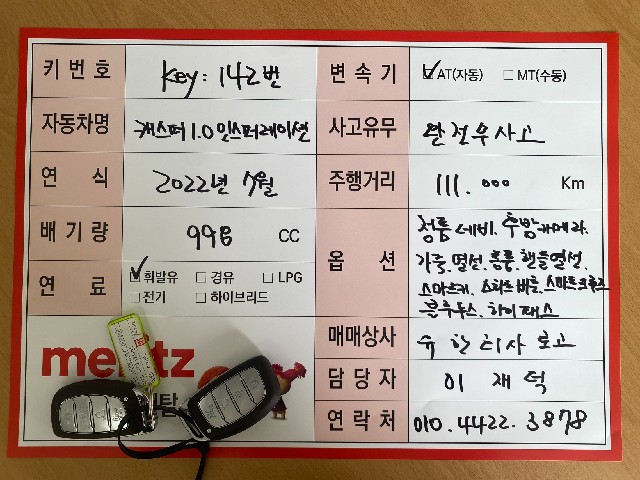 키 번호 Key: 142번
변속기 ✓AT(자동) □ MT(수동)
자동차명 캐스퍼 1.0 인스퍼레이션
사고유무 완전무사고
연식 2022년 7월
주행거리 111.000 Km
배기량 998 CC
옵션 정품 네비. 후방카메라.
가죽.열선.통풍.핸들열선.
스마트키. 스타트버튼.스마트크루즈
블루투스. 하이패스
연료 ✓휘발유 □ 경유 □ LPG
□ 전기 □ 하이브리드
매매상사 유한회사
담당자 이재덕
연락처 010.4422.3878
탐